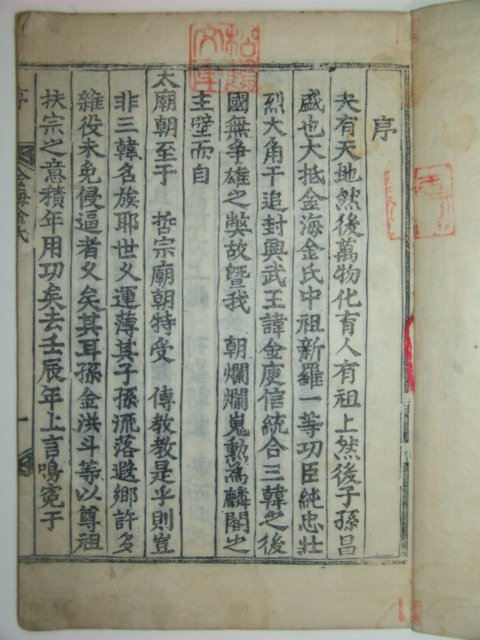 序
夫有天地然後萬物化育人有祖上然後子孫昌
盛也大抵金海金氏中祖新羅一等功臣純忠壯
烈大角干追封興武王諱金庾信統合三韓之後
國無争雄之獘故曁我 朝爛爛嵬勲為麟閣之
主壁而自
太廟朝至于 哲宗廟朝特受 傳教教是乎則豈
非三韓名族耶世又運薄其子孫流落遐鄉許多
雜役未免侵逼者久矣其耳孫金洪斗等以尊祖
扶宗之意積年用功矣去壬辰年上言鳴寃于
序 金海金氏 一